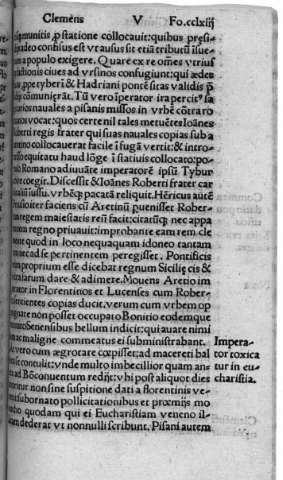 Clemens V Fo.cclxiij
munitis ꝓ statione collocauit: quibus presi-
adeo confisus est vt ausus sit etiã tributũ
a populo exigere. Quare ex re omes vtrius
ctionis ciues ad vrsinos confugiunt: qui ædes
ppe tyberĩ & Hadriani pontẽ sitas validis
cõmunierãt. Tũ vero ĩperator ira percit⁹
nauales a pisanis missos in vrbẽ cõtra ro
nos vocat: quos certe nil tales metuẽtes Ioānes
berti regis frater qui suas nauales copias sub a
collocauerat facile ĩ fugã vertit: & intro-
equitatu haud lõge ĩ statiuis collocato: po
Romano adiuuãte imperatorẽ ipsũ Tybur
coegit. Discessit & Ioānes Roberti frater
iussu. vrbẽqꝫ pacatã reliquit. Hẽricus autẽ
faciens cũ Aretinũ puenisset Rober-
regem maiestatis reũ facit: citatũqꝫ nec appa
regno priuauit: improbante eam rem cle
quod in loco nequaquam idoneo tantam
ad se pertinentem peregisset. Pontificis
proprium esse dicebat regnum Sicilię cis &
farum dare & adimere. Mouens Aretio im
in Florentinos et Lucenses cum Rober-
copias ducit. verum cum vrbem op
non posset occupato Bonitio eodemque
Senensibus bellum indicit: qui auare nimi
maligne commeatus ei subministrabant.
vero cum ægrotare cœpisset: ad macereti bal
contulit: vnde multo imbecillior quam an
ad Bõconuentum redijt: vbi post aliquot dies
non sine suspitione dati a florentinis ve-
subornato pollicitationibus et prœmijs mo
quodam qui ei Eucharistiam veneno il-
dederat vt nonnulli scribunt. Pisani autem
Impera-
tor toxica
tur in eu-
charistia.